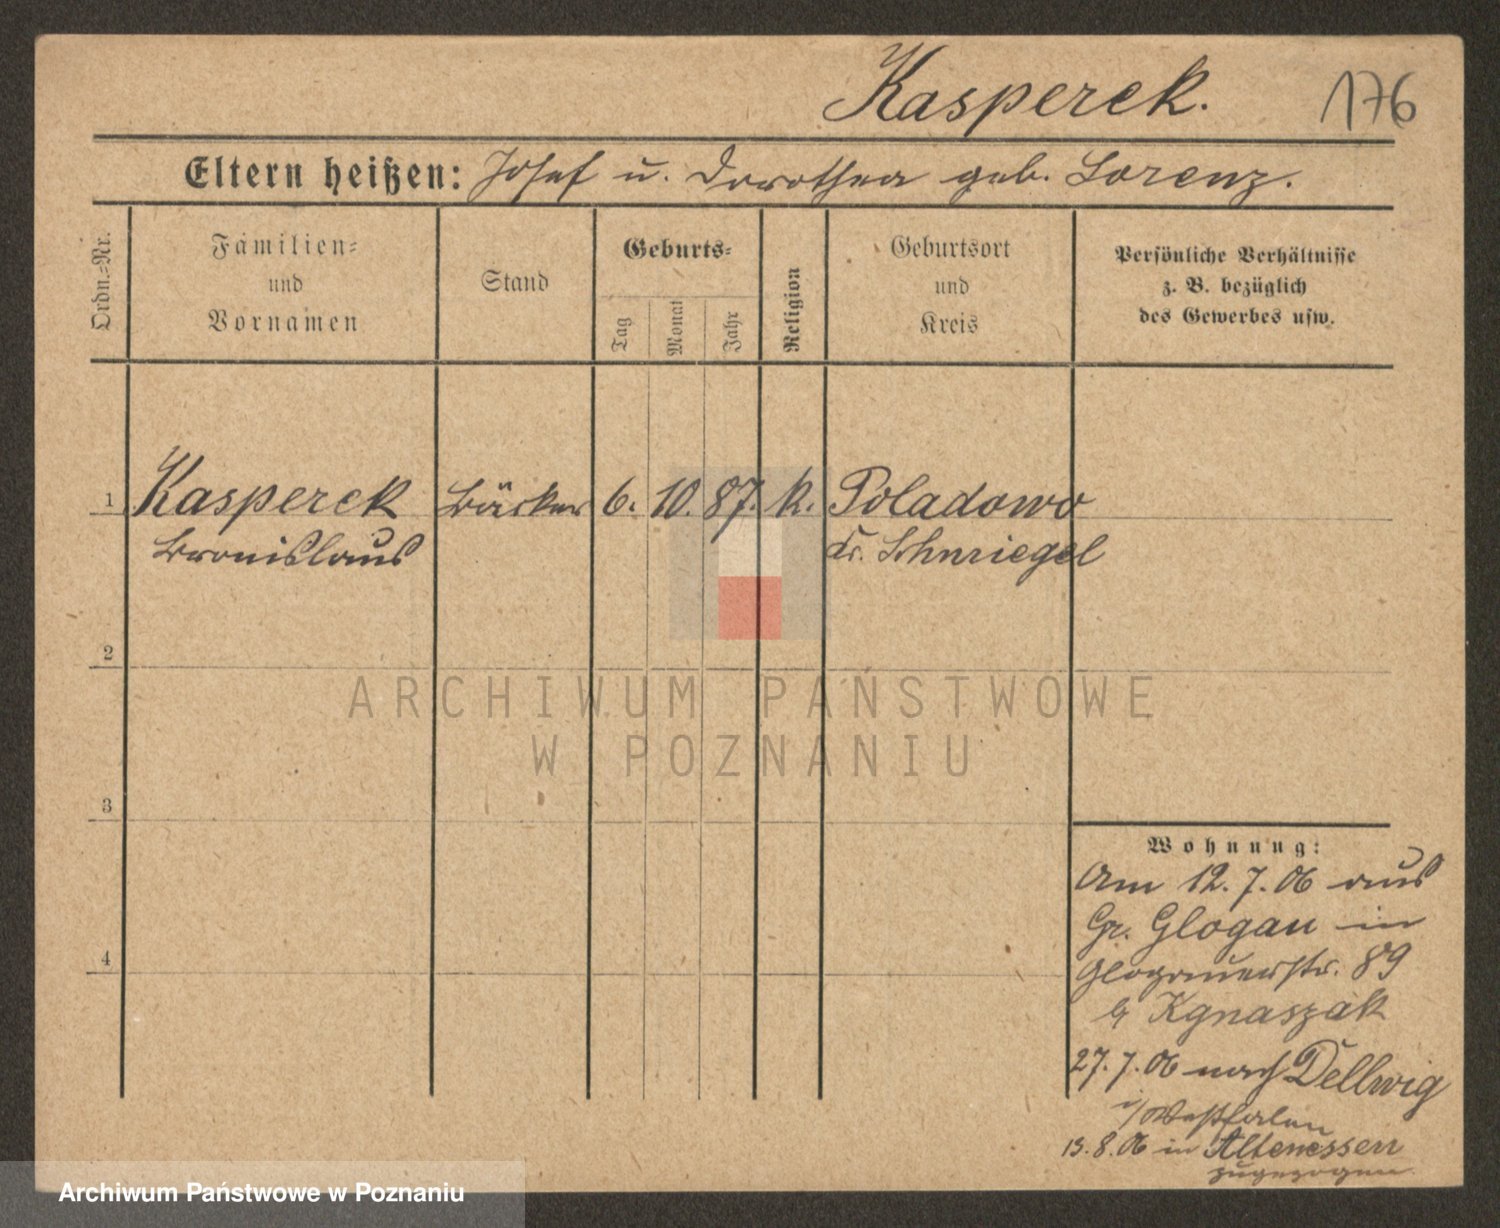 Kasperek.
176
Eltern heißen: Josef u. Dorothea geb. Lorenz.
Ordn.-Nr.
Familien-
und
Vornamen
Stand
Geburts-
Tag
Monat
Jahr
Religion
Geburtsort
und
Kreis
Persönliche Verhältnisse
z. B. bezüglich
des Gewerbes usw.
1 Kasperek Bäcker 6. 10. 87. k. Poladowo
Bronislaus Kr. Schmiegel
2
3
4
Wohnung:
Am 12.7.06 aus
Gr. Glogau in
Glogauerstr. 89
b/ Kgnaszak
27.7.06 nach Dellwig
i/Westfalen
13.8.06 in Altenessen
zugezogen
ARCHIWUM PAŃSTWOWE
W POZNANIU
Archiwum Państwowe w Poznaniu